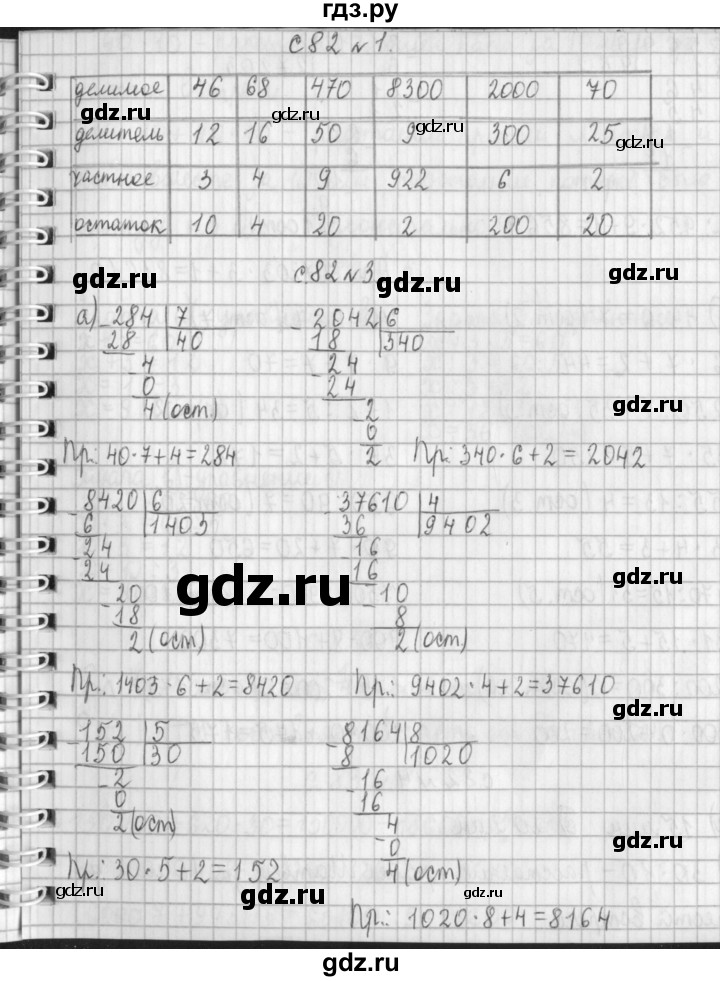 гдз.ру
с 82 № 1.
делимое 46 68 470 8300 2000 70
gdz.ru gdz.ru gdz.ru
делитель 12 16 50 9 300 25
gdz.ru
частное 3 4 9 922 6 2
остаток 10 4 20 2 200 20
с.82 № 3
gdz.ru gdz.ru gdz.ru
а) 284 7 2042 6
28 40 18 340
4 24
0 24
4 (ост) 2
gdz.ru
0
Пр.: 40·7+4=284 2 Пр.: 340·6+2=2042
8420 6 37610 4
6 1403 36 9402
24 16
24 16
gdz.ru gdz.ru
20 10
18 8
2 (ост) 2 (ост)
Пр.: 1403·6+2=8420 Пр.: 9402·4+2=37610
gdz.ru
152 5 8164 8
150 30 8 1020
2 16
0 16
2 (ост) 4
gdz.ru
0
Пр.: 30·5+2=152 4 (ост)
gdz.ru gdz.ru gdz.ru gdz.ru
Пр.: 1020·8+4=8164
gdz.ru